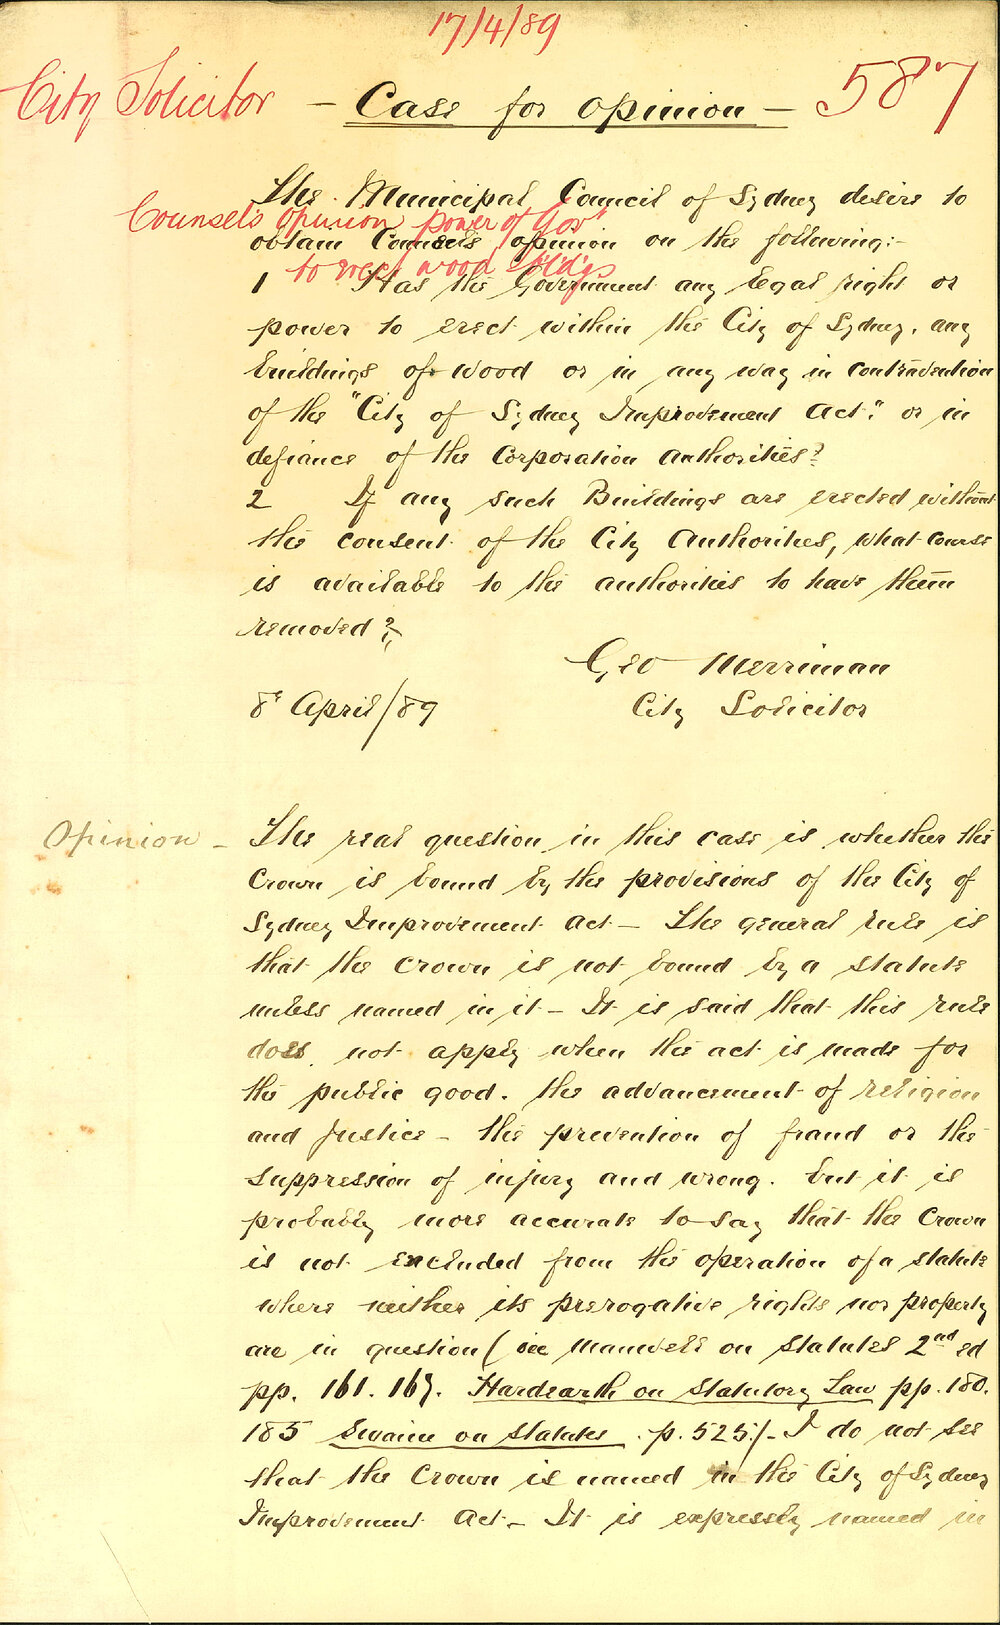 17/4/89
City Solicitor
587
— Case for opinion —
The Municipal Council of Sydney desire to
Counsel's opinion power of Govt
obtain Counsel's opinion on the following:-
to erect wood Bldgs
1 Has the Government any legal right or
power to erect within the City of Sydney, any
buildings of wood or in any way in contravention
of the "City of Sydney Improvement Act." or in
defiance of the Corporation authorities?
2 If any such Buildings are erected without
the consent of the City Authorities, what course
is available to the authorities to have them
removed?
Geo Merriman
8th April/89 City Solicitor
Opinion – The real question in this case is whether the
Crown is bound by the provisions of the City of
Sydney Improvement Act – The general rule is
that the Crown is not bound by a statute
unless named in it – It is said that this rule
does not apply when the act is made for
the public good. the advancement of religion
and Justice – the prevention of fraud or the
suppression of injury and wrong. but it is
probably more accurate to say that the Crown
is not excluded from the operation of a statute
where neither its prerogative rights nor property
are in question (see Maxwell on Statutes 2nd ed
pp. 161. 167. Hardcastle on Statutory Law pp. 180.
185 on Statutes . p. 525)– I do not see
that the Crown is named in the City of Sydney
Improvement Act – It is expressly named in